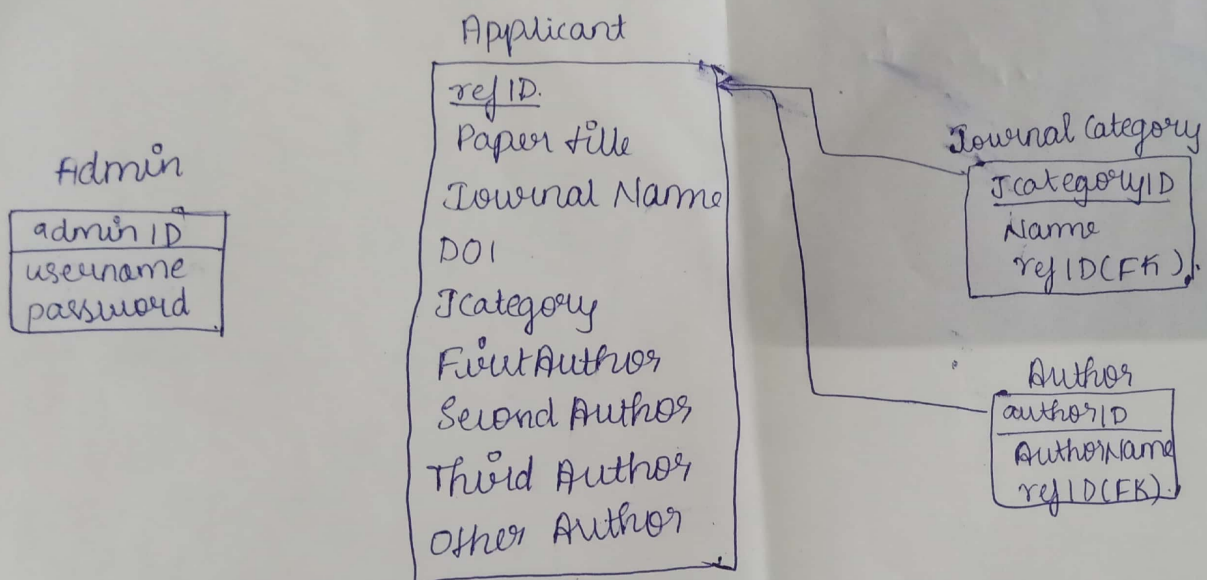 Admin
admin ID
username
password
Applicant
ref ID.
Paper title
Journal Name
DOI
Jcategory
First Author
Second Author
Third Author
Other Author
Journal Category
JcategoryID
Name
refID(FK)
Author
authorID
AuthorName
refID(FK).